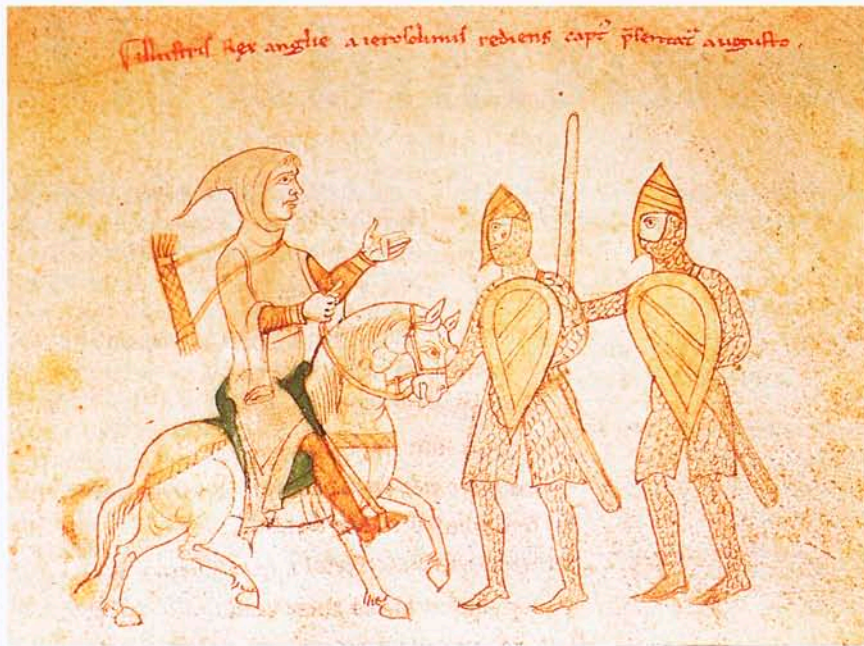 Illustris Rex anglie a ierosolimis rediens capt' p̄sentat᷑ augusto.